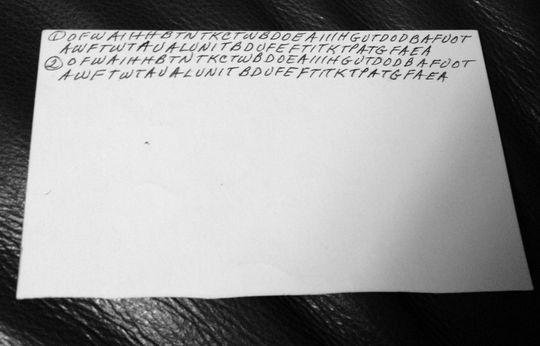 ① OFWAIHHBTNTKCTWBDOEAIIIHGUTDODBAFUOT
AWFTWTAUALUNITBDUFEFTITKTPATGFAEA
② OFWAIHHBTNTKCTWBDOEAIIIHGUTDODBAFUOT
AWFTWTAUALUNITBDUFEFTITKTPATGFAEA